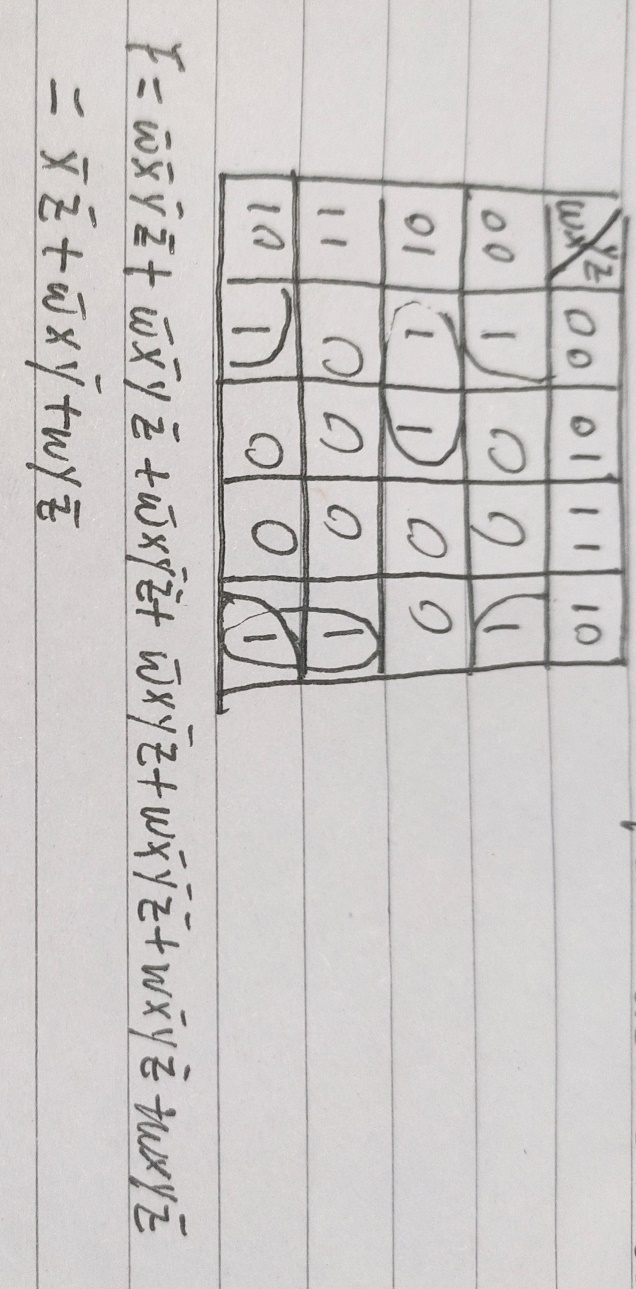 wx yz 00 01 11 10
00 1 0 0 1
01 1 1 0 0
11 0 0 0 1
10 1 0 0 1
F = w̄x̄ȳz̄ + w̄x̄yz̄ + w̄xȳz̄ + w̄xȳz + wx̄ȳz̄ + wx̄yz̄ + wxyz̄
= x̄z̄ + w̄xȳ + wyz̄